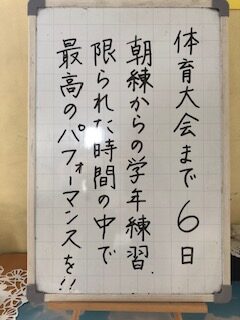 体育大会まで 6日
朝練からの学年練習.
限られた時間の中で
最高のパフォーマンスを!!